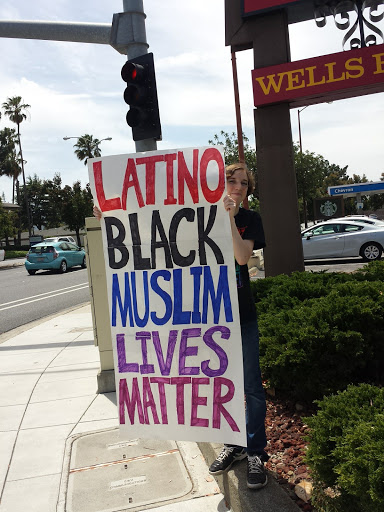 WELLS F
Chevron
LATINO
BLACK
MUSLIM
LIVES
MATTER